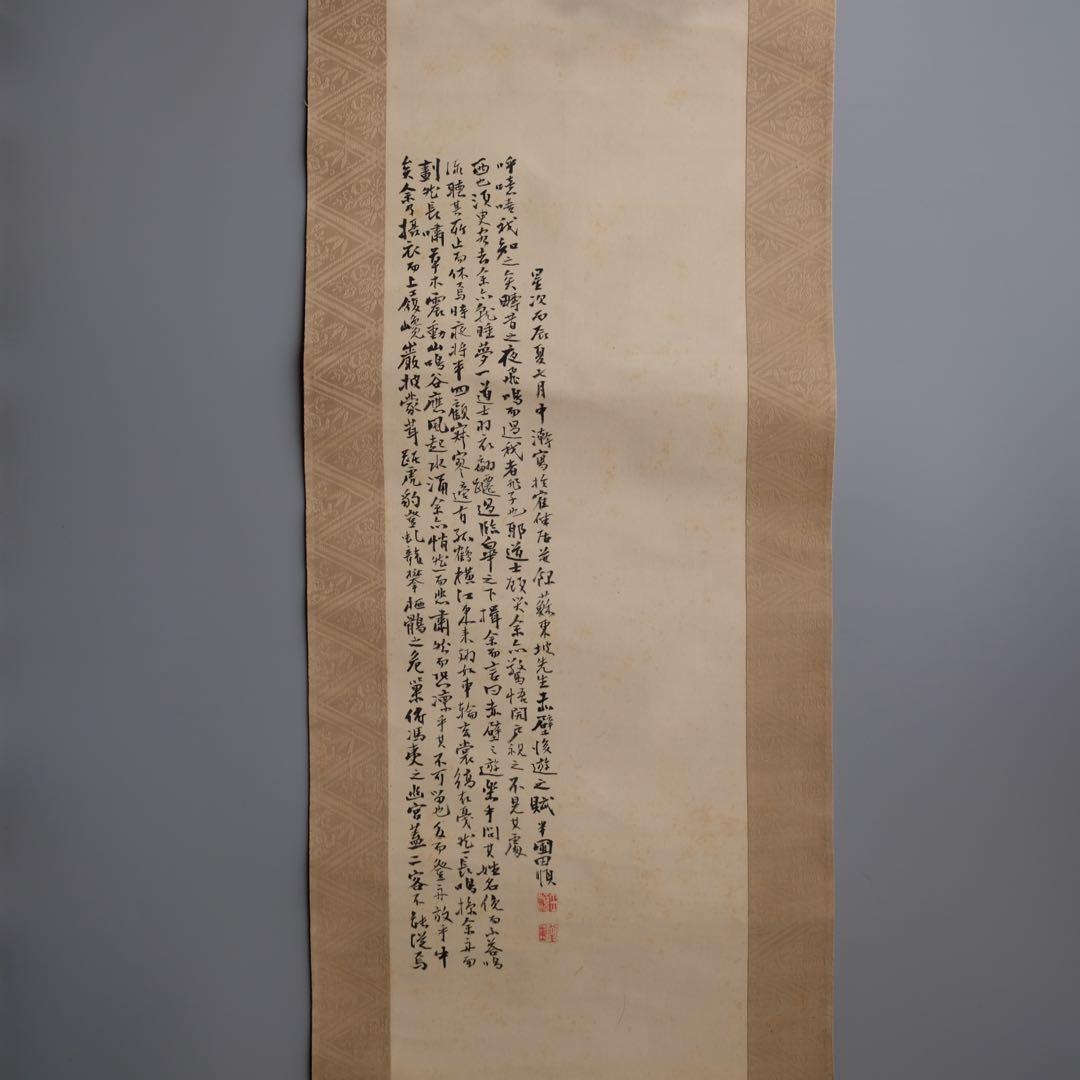 矣余乃攝衣而上履巉巖披蒙茸踞虎豹登虬龍攀栖鶻之危巢俯馮夷之幽宮蓋二客不能從焉
劃然長嘯草木震動山鳴谷應風起水涌余亦悄然而悲肅然而恐凛乎其不可留也反而登舟放乎中
流聽其所止而休焉時夜將半四顧寂寥適有孤鶴橫江東來翅如車輪玄裳縞衣戛然長鳴掠余舟而
西也須臾客去余亦就睡夢一道士羽衣翩躚過臨皋之下揖余而言曰赤壁之遊樂乎問其姓名俛而不答嗚
呼噫嘻我知之矣疇昔之夜飛鳴而過我者非子也耶道士顧笑余亦驚悟開戶視之不見其處
星次丙辰夏七月中澣寫於居并録蘇東坡先生赤壁後遊之賦 半園田順